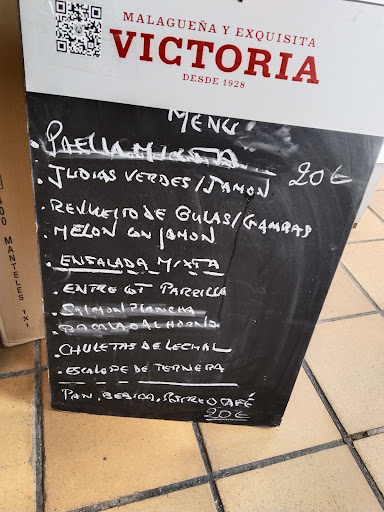 MALAGUEÑA Y EXQUISITA
VICTORIA
DESDE 1928
MENÚ
. PAELLA MIXTA
. JUDIAS VERDES/JAMON 20€
. REVUELTO DE GULAS/GAMBAS
. MELON CON JAMON
. ENSALADA MIXTA
. ENTRECOT PARRILLA
. SALMON PLANCHA
. BACALAO AL HORNO
. CHULETAS DE LECHAL
. ESCALOPE DE TERNERA
PAN, BEBIDA, POSTRE O CAFÉ
20€
400 MANTELES 1X1